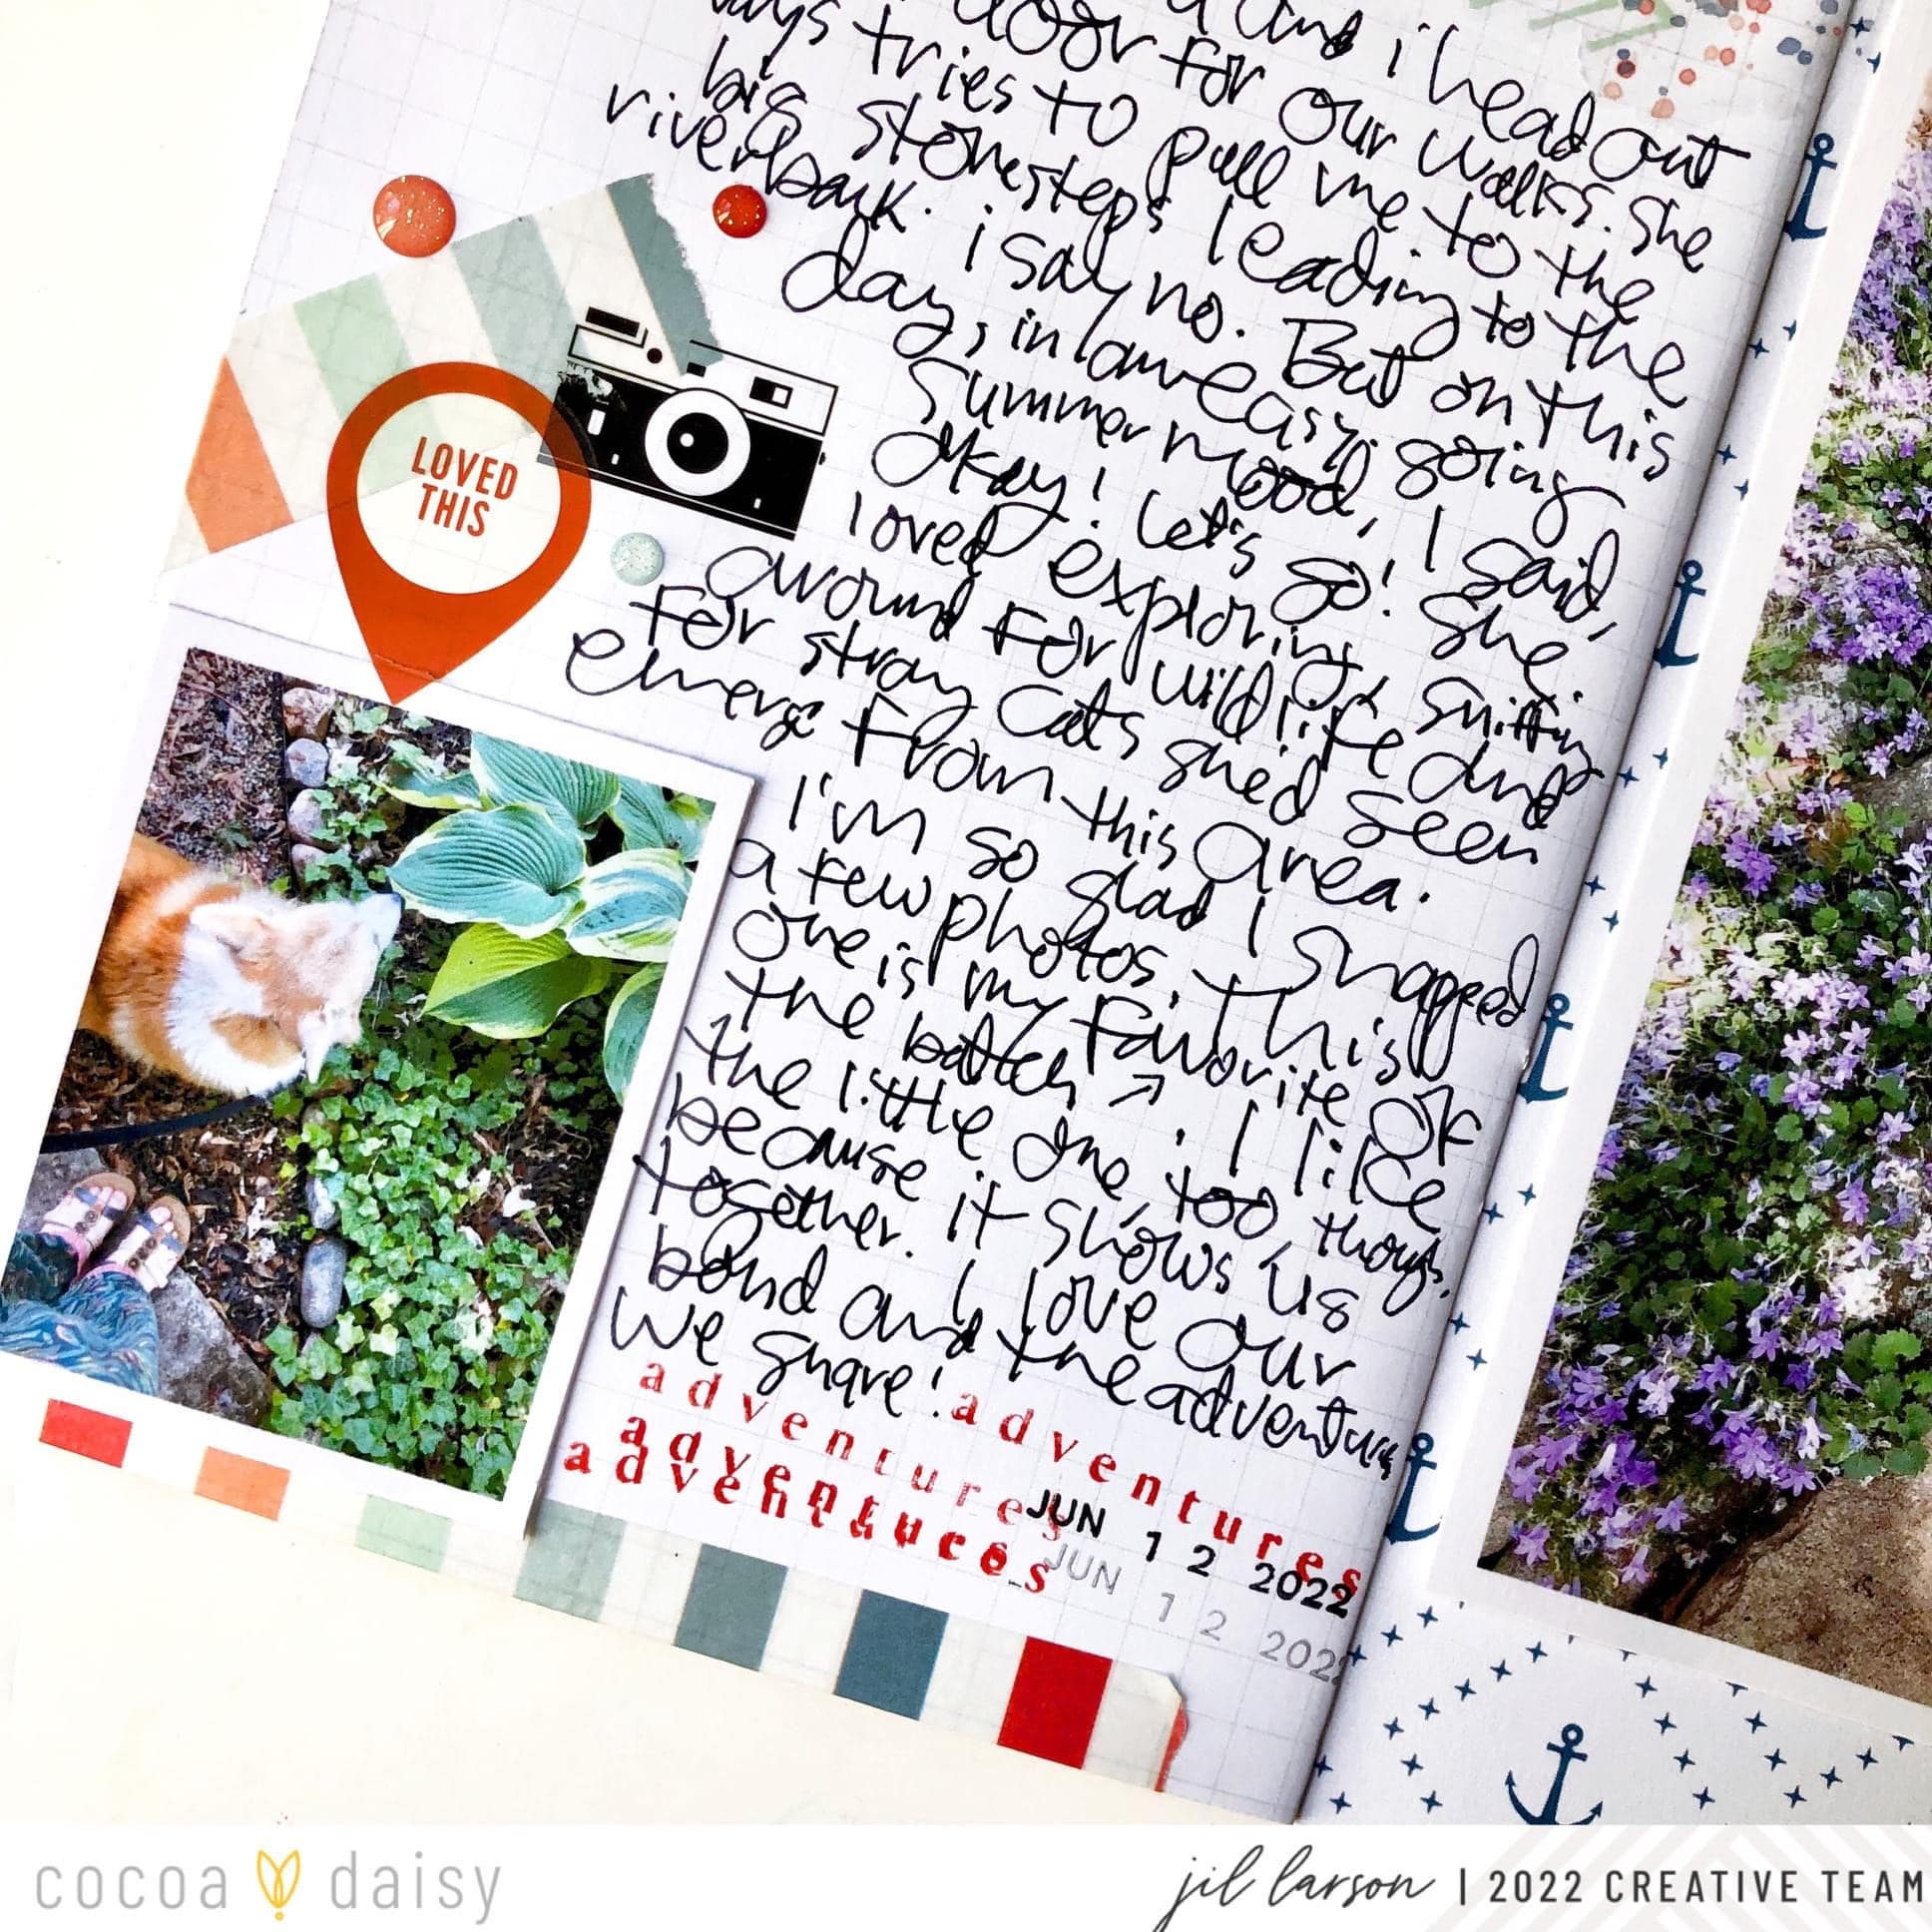 and i head out
door for our walks. She
tries to pull me to the
big stone steps leading to the
riverbank. i say no. But on this
day, in an easy-going
summer mood, I said,
Okay! Let's go! She
loved exploring, sniffing
around for wildlife and
for stray cats shed seen
emerge from this area.
I'm so glad I snapped
a few photos. This
one is my favorite of
the batch ↗. I like
the little one, too, though,
because it shows us
together. I love our
bond and the adventures
we share!
LOVED
THIS
adventures
adventures
adventures
adventures
JUN 12 2022
JUN 12 202
cocoa daisy
jil larson | 2022 CREATIVE TEAM